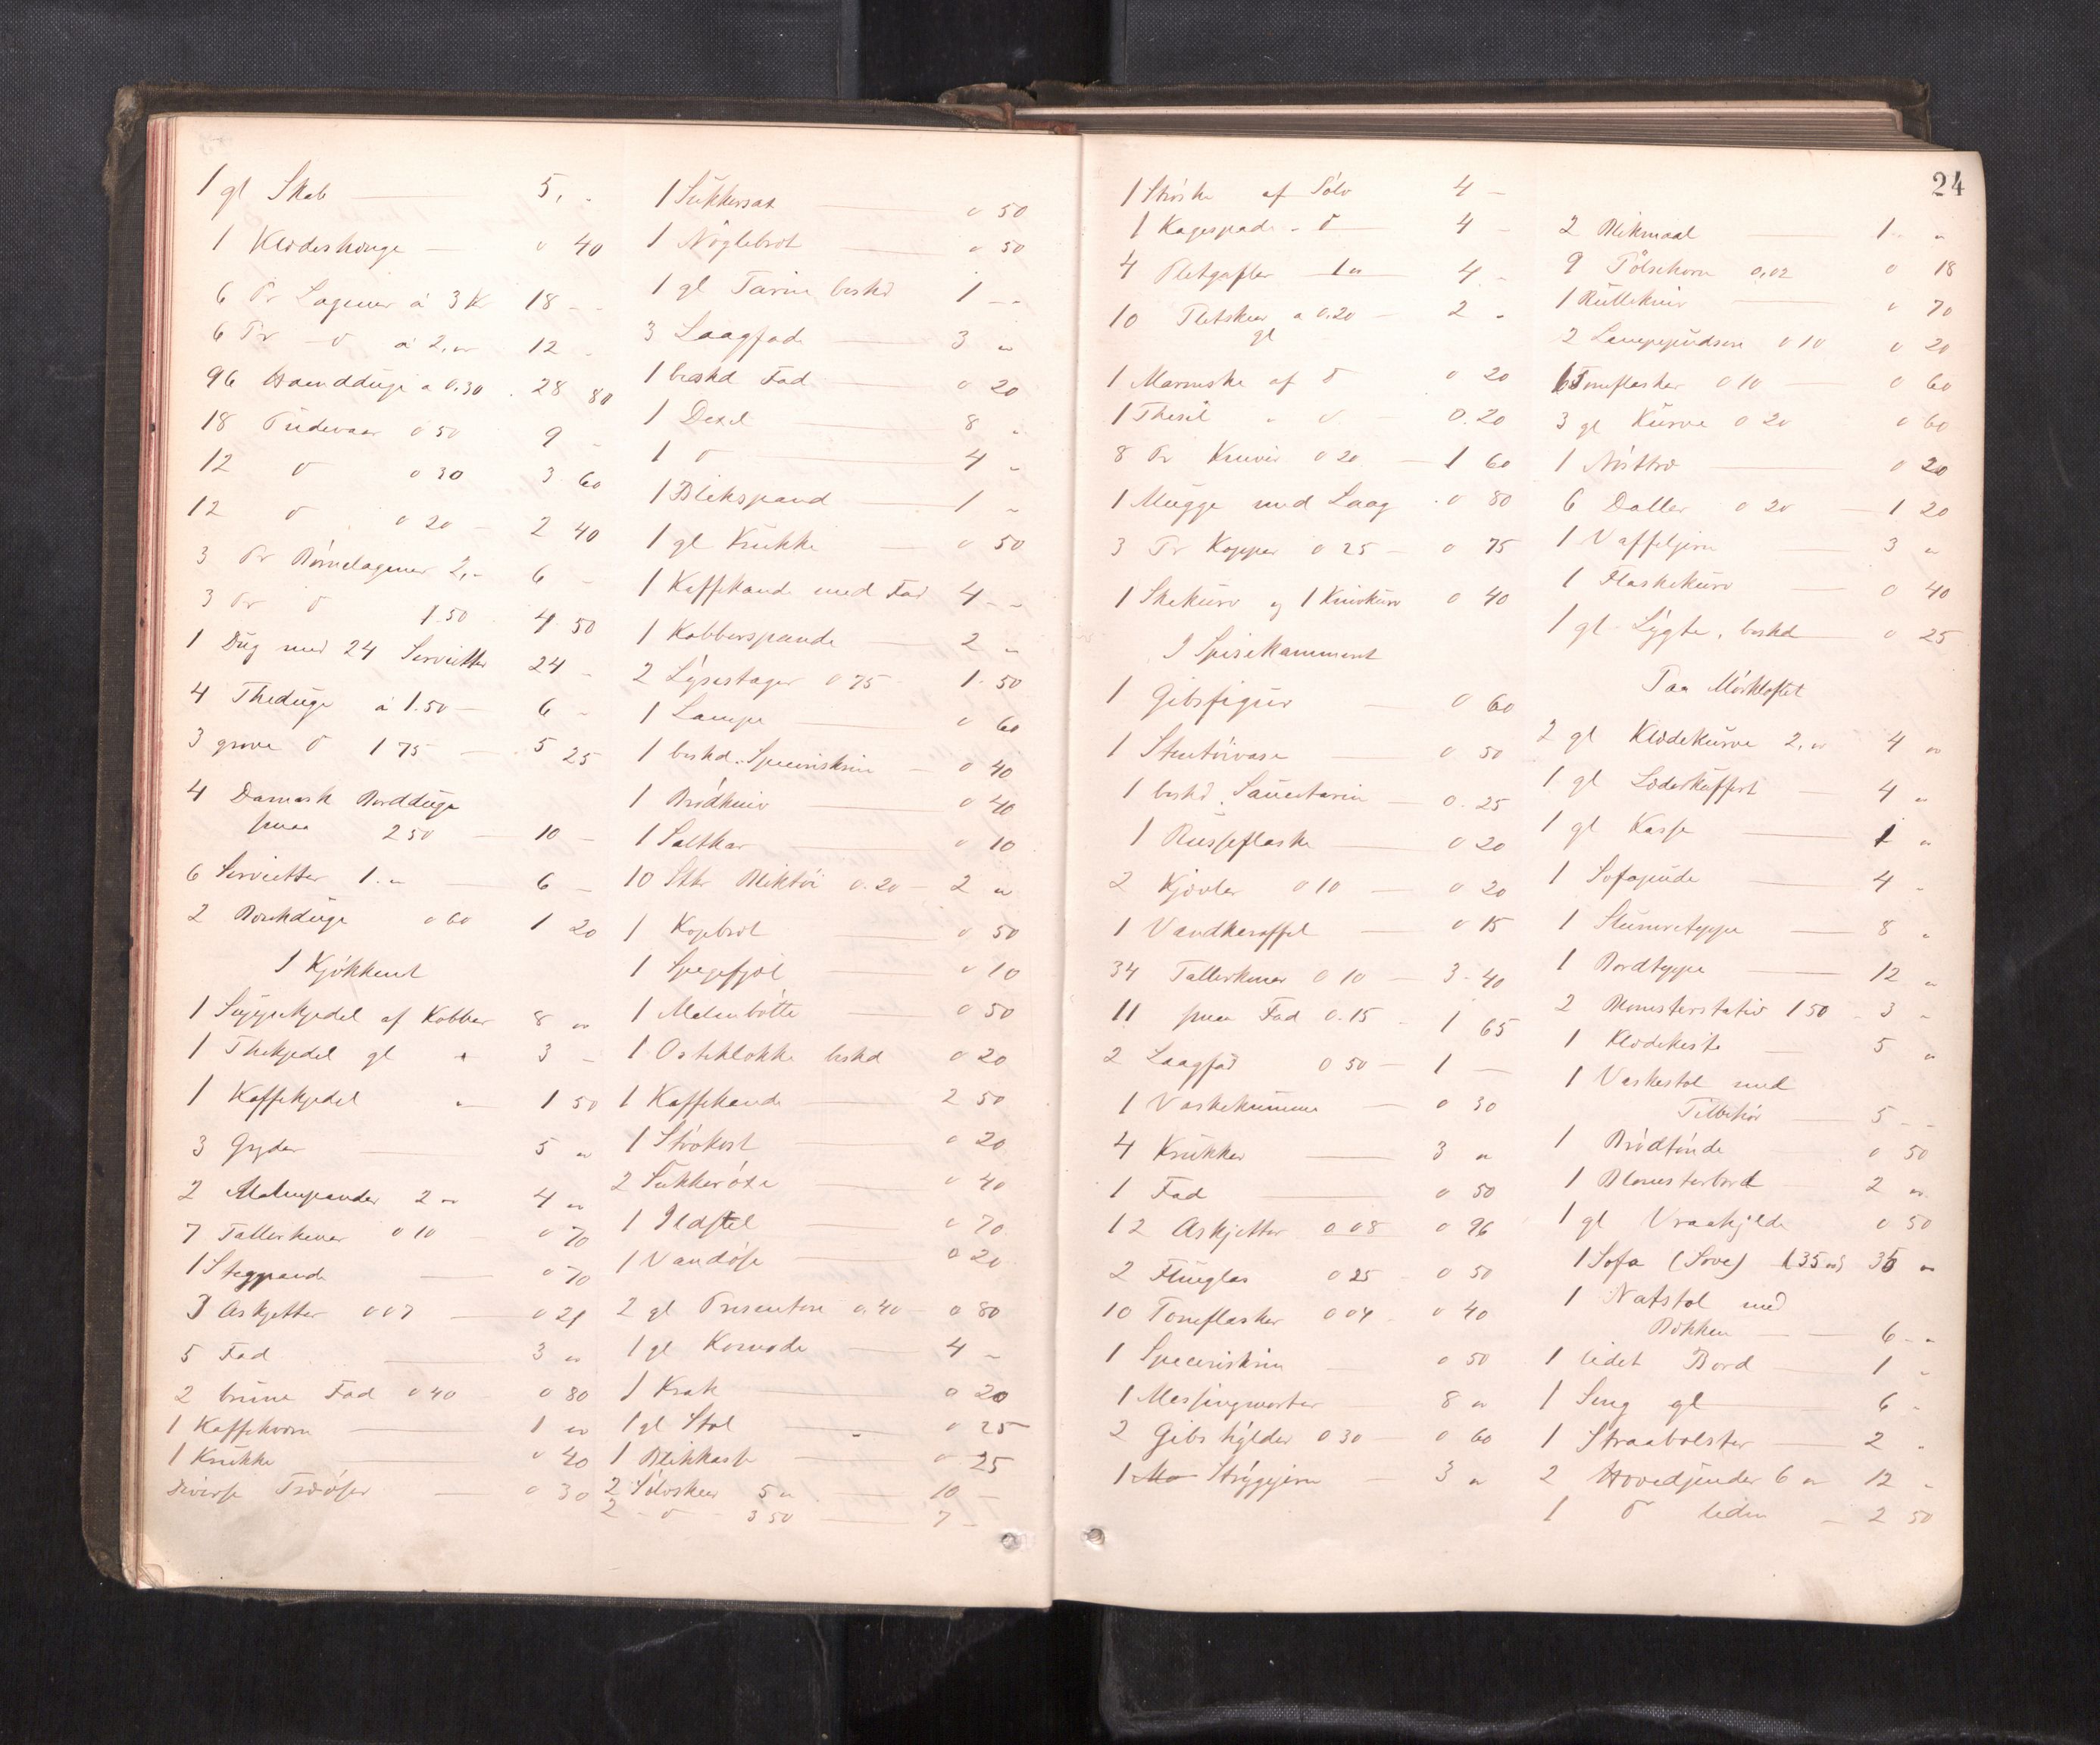 1 gl Skab — 5, -
1 Klædeshænge — 0 40
6 Pr Lagener á 3 K 18 - -
6 Pr — d° á 2,00 12 -
96 Haandduge a 0.30 . 28 80
18 Pudevaar 0 50 9 -
12 d° 0 30 3 60
12 d° 0 20 — 2 40
3 Pr Børnelagener 2,- 6 -
3 Pr d° 1.50 4 50
1 Dug med 24 Servietter 24 -
4 Theduge á 1.50 — 6 -
3 grove d° 1 75 — 5 25
4 Damask Bordduge
smaa 2 50 — 10 -
6 Servietter 1.- — 6 -
2 Bordduge 0 60 1 20
I Kjøkkenet
1 Suppekjedel af Kobber 8 "
1 Thekjedel gl 3 -
1 Kaffekjedel " 1 50
3 Gryder — 5 "
2 Malmpander 2 " 4 "
7 Tallerkener 0 10 0 70
1 Stegpande — 0 70
3 Askjetter 0 07 — 0 21
5 Fad — 3 "
2 brune Fad 0 40 0 80
1 Kaffekværn — 1 "
1 Krukke 0 40
Diverse Træøser — 0 30
1 Sukkersax — 0 50
1 Nøglebræt — 0 50
1 gl Tærin beskd 1 - -
3 Laagfade — 3 "
1 beskd Fad — 0 20
1 Dexel — 8 "
1 d° — 4 "
1 Blikspand — 1 "
1 gl Krukke — 0 50
1 Kaffekande med Fad 4 - -
1 Kobberspande — 2 "
2 Lysestager 0 75 1. 50
1 Lampe — 0 60
1 beskd. Speceriskrin — 0 40
1 Brødkniv — 0 40
1 Saltkar — 0 10
10 Stkr Bliktøi 0.20 2 "
1 Kopbræt — 0 50
1 Spegefjøl — 0 10
1 Malmbøtte — 0 50
1 Osteklokke beskd 0 20
1 Kaffekande — 2 50
1 Støvkost — 0 20
2 Sukkerøxe — 0 40
1 Ildstel — 0 70
1 Vandøse — 0 20
2 gl Presentere 0.40 — 0 80
1 gl Komode — 4 -
1 Krak — 0 20
1 gl Stol — 0 25
1 Blikkasse — 0 25
2 Sølvskeer 5 " — 10 -
2 - d° - 3 50 — 7 -
24
1 Strøske af Sølv 4 -
1 Kagespade - d° — 4 -
4 Pletgafler — 1 " — 4 -
10 Pletskeer a 0.20 — 2 "
gl
1 Marmske af d° 0 20
1 Thesil " d° 0.20
8 Pr Knive 0 20 — 1 60
1 Mugge med Laag . 0 80
3 Pr Kopper 0 25 — 0 75
1 Skekurv og 1 Knivkurv 0 40
I Spisekammeret
1 Gibsfigur — 0 60
1 Stentøivase — 0 50
1 beskd. Saucetærin — 0. 25
1 Russeflaske — 0 20
2 Kjævler 0 10 — 0 20
1 Vandkaraffel — 0 15
34 Tallerkener 0 10 — 3. 40
11 smaa Fad 0.15 - 1 65
2 Laagfad 0 50 — 1 —
1 Vaskekumme — 0 30
4 Krukker — 3 "
1 Fad — 0 50
12 Askjetter 0 08 0 96
2 Flueglas 0 25 - 0 50
10 Tomflasker 0 04 - 0 40
1 Speceriskrin — 0 50
1 Messingmorter — 8 "
2 Gibshylder 0 30 — 0 60
1 Mo Strygejern — 3 "
2 Blikmaal — 1 - "
9 Pølsehorn 0,02 0 18
1 Rullekniv — 0 70
2 Lampepudsere 0 10 0 20
6 Tomflasker 0 10 — 0 60
3 gl Kurve 0 20 0 60
1 Nøsttræ — 0 20
6 Daller 0 20 — 1 20
1 Vaffeljern — 3 "
1 Flaskekurv — 0 40
1 gl. Lygte, beskd 0 25
Paa Mørkloftet
2 gl Klædekurve 2, " 4 "
1 gl Læderkuffert — 4 "
1 gl Kasse — 1 "
1 Sofapude — 4 -
1 Slumretæppe — 8 "
1 Bordtæppe — 12 "
2 Blomsterstativ 1 50 - 3 -
1 Klædekiste — 5 "
1 Vaskestol med
Tilbehør — 5 - -
1 Brødtønde 0 50
1 Blomsterbord — 2 "
1 gl Vraahylde 0 50
1 Sofa (Sove) (35 ") 35 "
1 Natstol med
Bækken — — 6 - "
1 lidet Bord — 1 -
1 Seng gl — 6 -
1 Straabolster — 2 -
2 Hovedpuder 6 " 12 -
1 d° liden — 2 50